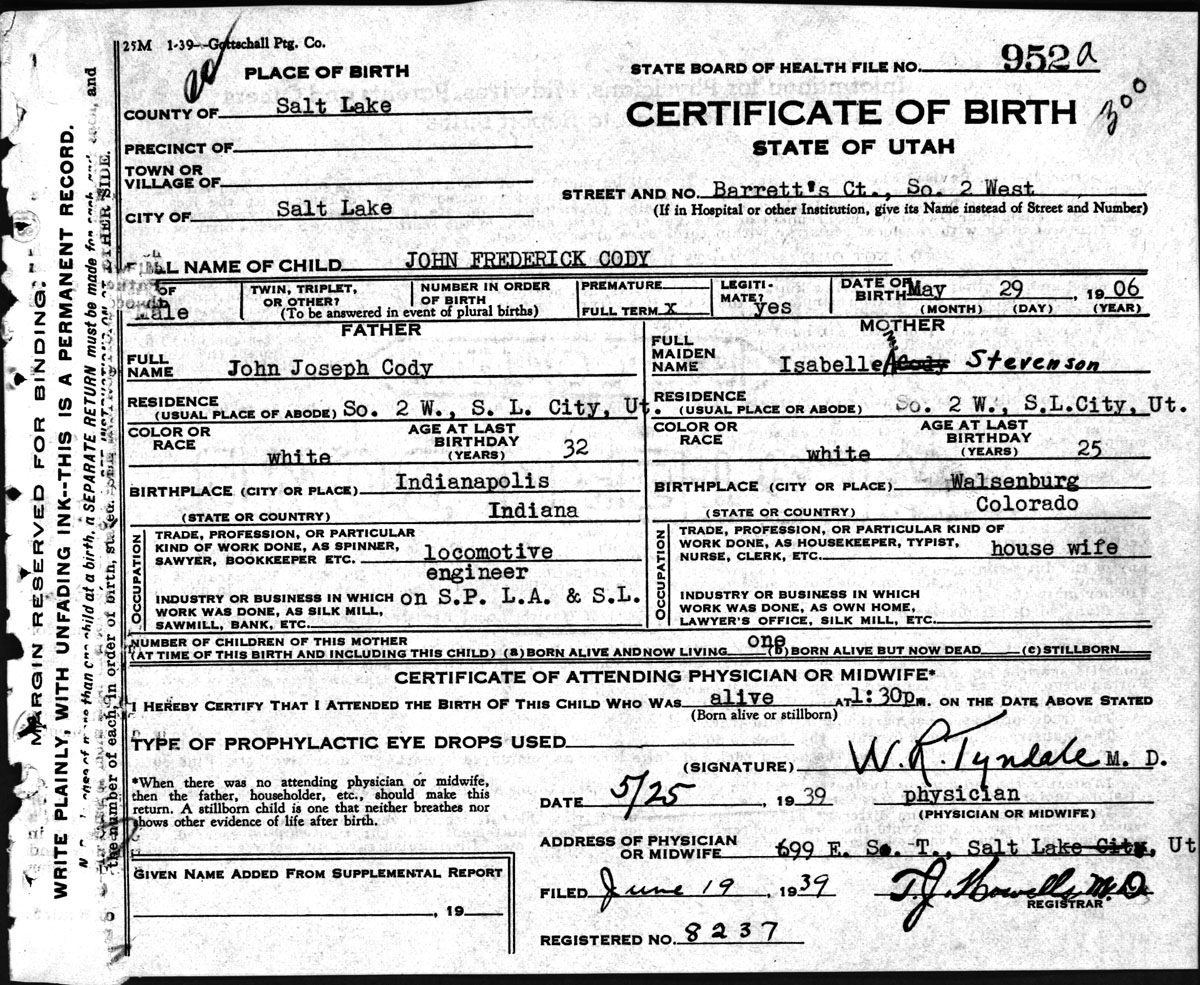 25M 1-39--Gottschall Ptg. Co.
PLACE OF BIRTH
STATE BOARD OF HEALTH FILE NO. 952a
COUNTY OF Salt Lake
CERTIFICATE OF BIRTH
300
PRECINCT OF
STATE OF UTAH
TOWN OR
VILLAGE OF
STREET AND NO. Barrett's Ct., So. 2 West
CITY OF Salt Lake
(If in Hospital or other Institution, give its Name instead of Street and Number)
NAME OF CHILD JOHN FREDERICK CODY
OF
Male
TWIN, TRIPLET,
OR OTHER?
NUMBER IN ORDER
OF BIRTH
(To be answered in event of plural births)
PREMATURE
FULL TERM X
LEGITI-
MATE? yes
DATE OF
BIRTH May 29, 1906
(MONTH) (DAY) (YEAR)
FATHER
FULL
NAME John Joseph Cody
RESIDENCE
(USUAL PLACE OF ABODE) So. 2 W., S. L. City, Ut.
COLOR OR
RACE white
AGE AT LAST
BIRTHDAY
(YEARS) 32
BIRTHPLACE (CITY OR PLACE) Indianapolis
(STATE OR COUNTRY) Indiana
OCCUPATION
TRADE, PROFESSION, OR PARTICULAR
KIND OF WORK DONE, AS SPINNER,
SAWYER, BOOKKEEPER ETC. locomotive
engineer
INDUSTRY OR BUSINESS IN WHICH on S.P. L.A. & S.L.
WORK WAS DONE, AS SILK MILL,
SAWMILL, BANK, ETC.
MOTHER
FULL
MAIDEN
NAME Isabelle Cody Stevenson
RESIDENCE
(USUAL PLACE OR ABODE) So. 2 W., S.L.City, Ut.
COLOR OR
RACE white
AGE AT LAST
BIRTHDAY
(YEARS) 25
BIRTHPLACE (CITY OR PLACE) Walsenburg
(STATE OR COUNTRY) Colorado
OCCUPATION
TRADE, PROFESSION, OR PARTICULAR KIND OF
WORK DONE, AS HOUSEKEEPER, TYPIST,
NURSE, CLERK, ETC. house wife
INDUSTRY OR BUSINESS IN WHICH
WORK WAS DONE, AS OWN HOME,
LAWYER'S OFFICE, SILK MILL, ETC.
NUMBER OF CHILDREN OF THIS MOTHER
(AT TIME OF THIS BIRTH AND INCLUDING THIS CHILD) (a) BORN ALIVE AND NOW LIVING one (b) BORN ALIVE BUT NOW DEAD (c) STILLBORN
CERTIFICATE OF ATTENDING PHYSICIAN OR MIDWIFE*
I HEREBY CERTIFY THAT I ATTENDED THE BIRTH OF THIS CHILD WHO WAS alive AT 1:30p M. ON THE DATE ABOVE STATED
(Born alive or stillborn)
TYPE OF PROPHYLACTIC EYE DROPS USED
(SIGNATURE) W. R. Tyndale M. D.
*When there was no attending physician or midwife,
then the father, householder, etc., should make this
return. A stillborn child is one that neither breathes nor
shows other evidence of life after birth.
DATE 5/25, 1939 physician
(PHYSICIAN OR MIDWIFE)
ADDRESS OF PHYSICIAN
OR MIDWIFE 699 E. So. T., Salt Lake City, Ut
GIVEN NAME ADDED FROM SUPPLEMENTAL REPORT
, 19
FILED June 19, 1939 T. J. Howells M.D.
REGISTRAR
REGISTERED NO. 8237
MARGIN RESERVED FOR BINDING.
WRITE PLAINLY, WITH UNFADING INK--THIS IS A PERMANENT RECORD.
more than one child at a birth, a SEPARATE RETURN must be made for each, and
the number of each, in order of birth,
OTHER SIDE.